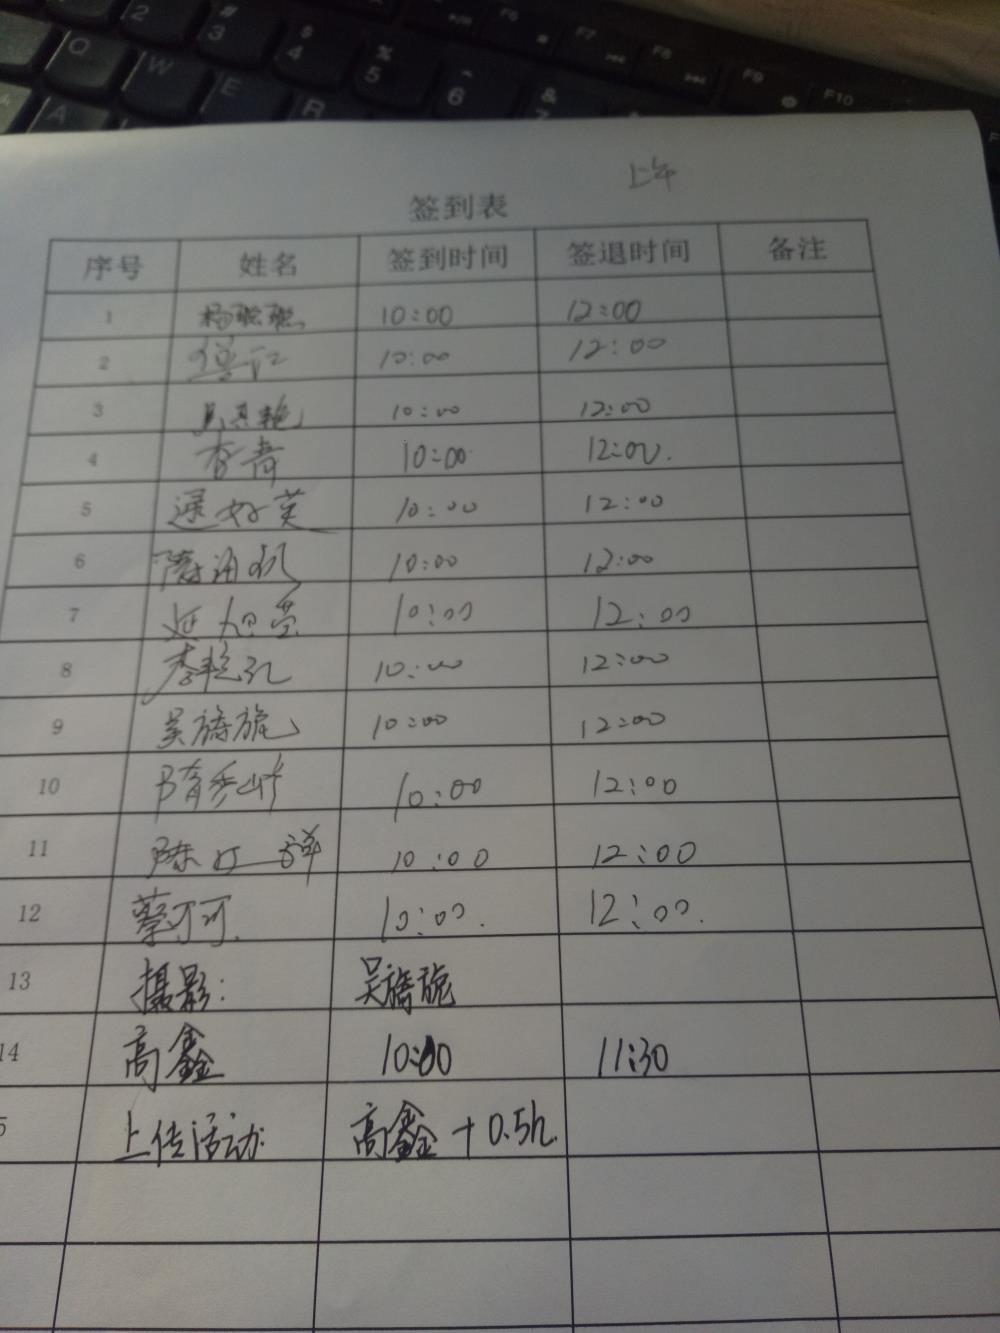 2
#
3
$
4
%
5
^
6
&
7
F6
F7
F8
F9
F10
Q
W
E
R
A
上午
签到表
序号 姓名 签到时间 签退时间 备注
1 杨聪聪 10:00 12:00
2 10:00 12:00
3 10:00 12:00
4 李青 10:00 12:00.
5 逯好英 10:00 12:00
6 10:00 12:00
7 延旭莹 10:00 12:00
8 李艳红 10:00 12:00
9 吴旖旎 10:00 12:00
10 10:00 12:00
11 10:00 12:00
12 蔡可可. 10:00. 12:00.
13 摄影: 吴旖旎
14 高鑫 10:00 11:30
5 上传活动 高鑫+0.5h.